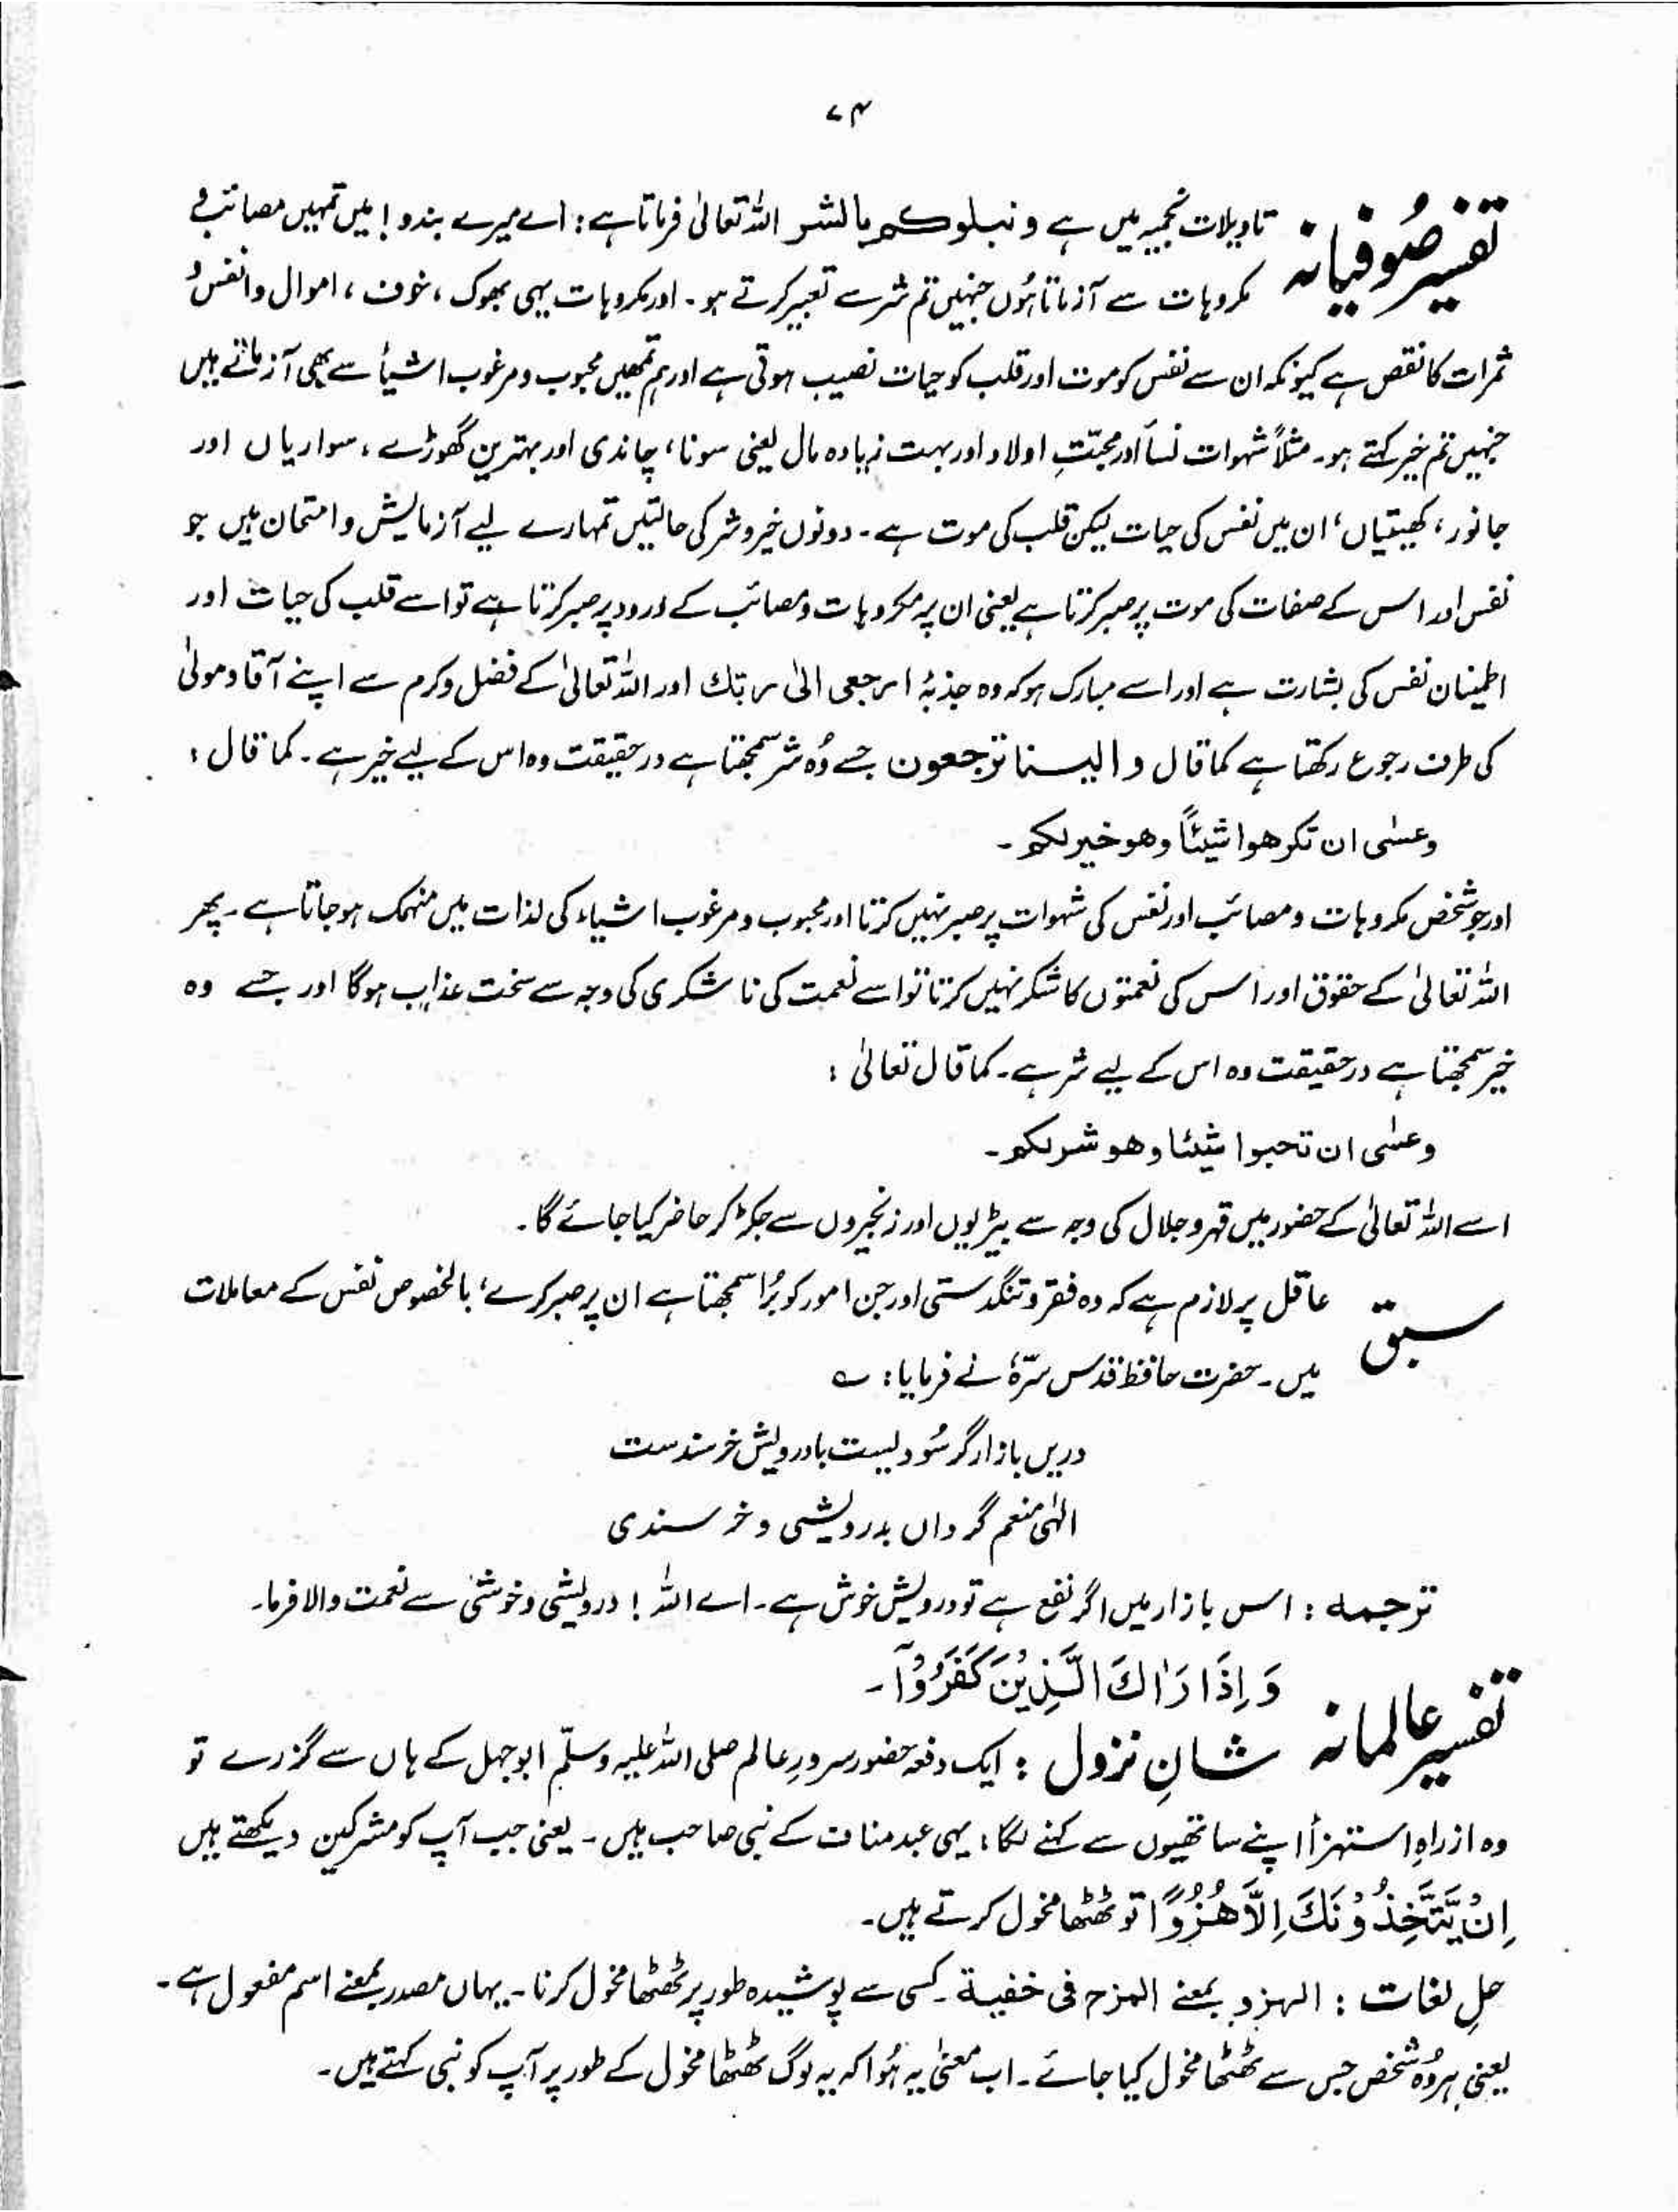 ۷۴
تفسیر صُوفیانہ تاویلات نجمیہ میں ہے ونبلوکم بالشر اللہ تعالیٰ فرماتا ہے : اے میرے بندو ! میں تمہیں مصائب و
مکروہات سے آزماتا ہُوں جنہیں تم شر سے تعبیر کرتے ہو ۔ اور مکروہات یہی بھوک ، خوف ، اموال و انفس و
ثمرات کا نقص ہے کیونکہ ان سے نفس کو موت اور قلب کو حیات نصیب ہوتی ہے اور ہم تمھیں محبوب و مرغوب اشیأ سے بھی آزماتے ہیں
جنہیں تم خیر کہتے ہو ۔ مثلاً شہوات نسأ اور محبّتِ اولاد اور بہت زیادہ مال یعنی سونا ، چاندی اور بہترین گھوڑے ، سواریاں اور
جانور ، کھیتیاں ، ان میں نفس کی حیات لیکن قلب کی موت ہے ۔ دونوں خیر و شر کی حالتیں تمہارے لیے آزمایش و امتحان ہیں جو
نفس اور اس کے صفات کی موت پر صبر کرتا ہے یعنی ان پر مکروہات و مصائب کے ورود پر صبر کرتا ہے تو اسے قلب کی حیات اور
اطمینان نفس کی بشارت ہے اور اسے مبارک ہو کہ وہ جذبۂ ارجعی الیٰ ربّک اور اللہ تعالیٰ کے فضل و کرم سے اپنے آقا و مولیٰ
کی طرف رجوع رکھتا ہے کما قال و الیسنا ترجعون جسے وُہ شر سمجھتا ہے درحقیقت وہ اس کے لیے خیر ہے ۔ کما قال :
وعسٰی ان تکرھوا شیئاً وھو خیر لکم ۔
اور جو شخص مکروہات و مصائب اور نفس کی شہوات پر صبر نہیں کرتا اور محبوب و مرغوب اشیاء کی لذات میں منہمک ہوجاتا ہے ۔ پھر
اللہ تعالیٰ کے حقوق اور اس کی نعمتوں کا شکر نہیں کرتا تو اسے نعمت کی ناشکری کی وجہ سے سخت عذاب ہوگا اور جسے وہ
خیر سمجھتا ہے درحقیقت وہ اس کے لیے شر ہے ۔ کما قال تعالیٰ :
وعسٰی ان تحبوا شیئا وھو شر لکم ۔
اسے اللہ تعالیٰ کے حضور میں قہر و جلال کی وجہ سے بیڑیوں اور زنجیروں سے جکڑ کر حاضر کیا جائے گا ۔
سبق عاقل پر لازم ہے کہ وہ فقر و تنگدستی اور جن امور کو بُرا سمجھتا ہے ان پر صبر کرے ، بالخصوص نفس کے معاملات
میں ۔ حضرت حافظ قدس سرّہٗ نے فرمایا : ؎
دریں بازار گر سُودیست با درویش خرسندست
الٰہی منعم گرداں بدرویشی و خرسندی
ترجمہ : اس بازار میں اگر نفع ہے تو درویش خوش ہے ۔ اے اللہ ! درویشی و خوشی سے نعمت والا فرما ۔
تفسیر عالمانہ وَ اِذَا رَاٰكَ الَّذِیْنَ كَفَرُوْۤا ۔
شانِ نزول : ایک دفعہ حضور سرورِ عالم صلی اللہ علیہ وسلّم ابوجہل کے ہاں سے گزرے تو
وہ ازراہِ استہزأ اپنے ساتھیوں سے کہنے لگا : یہی عبد مناف کے نبی صاحب ہیں ۔ یعنی جب آپ کو مشرکین دیکھتے ہیں
اِنْ یَّتَّخِذُوْنَكَ اِلَّا هُزُوًا تو ٹھٹھا مخول کرتے ہیں ۔
حلِ لغات : الھزو بمعنے المزح فی خفیۃ ۔ کسی سے پوشیدہ طور پر ٹھٹھا مخول کرنا ۔ یہاں مصدر بمعنے اسم مفعول ہے ۔
یعنی ہر وُہ شخص جس سے ٹھٹھا مخول کیا جائے ۔ اب معنیٰ یہ ہُوا کہ یہ لوگ ٹھٹھا مخول کے طور پر آپ کو نبی کہتے ہیں ۔